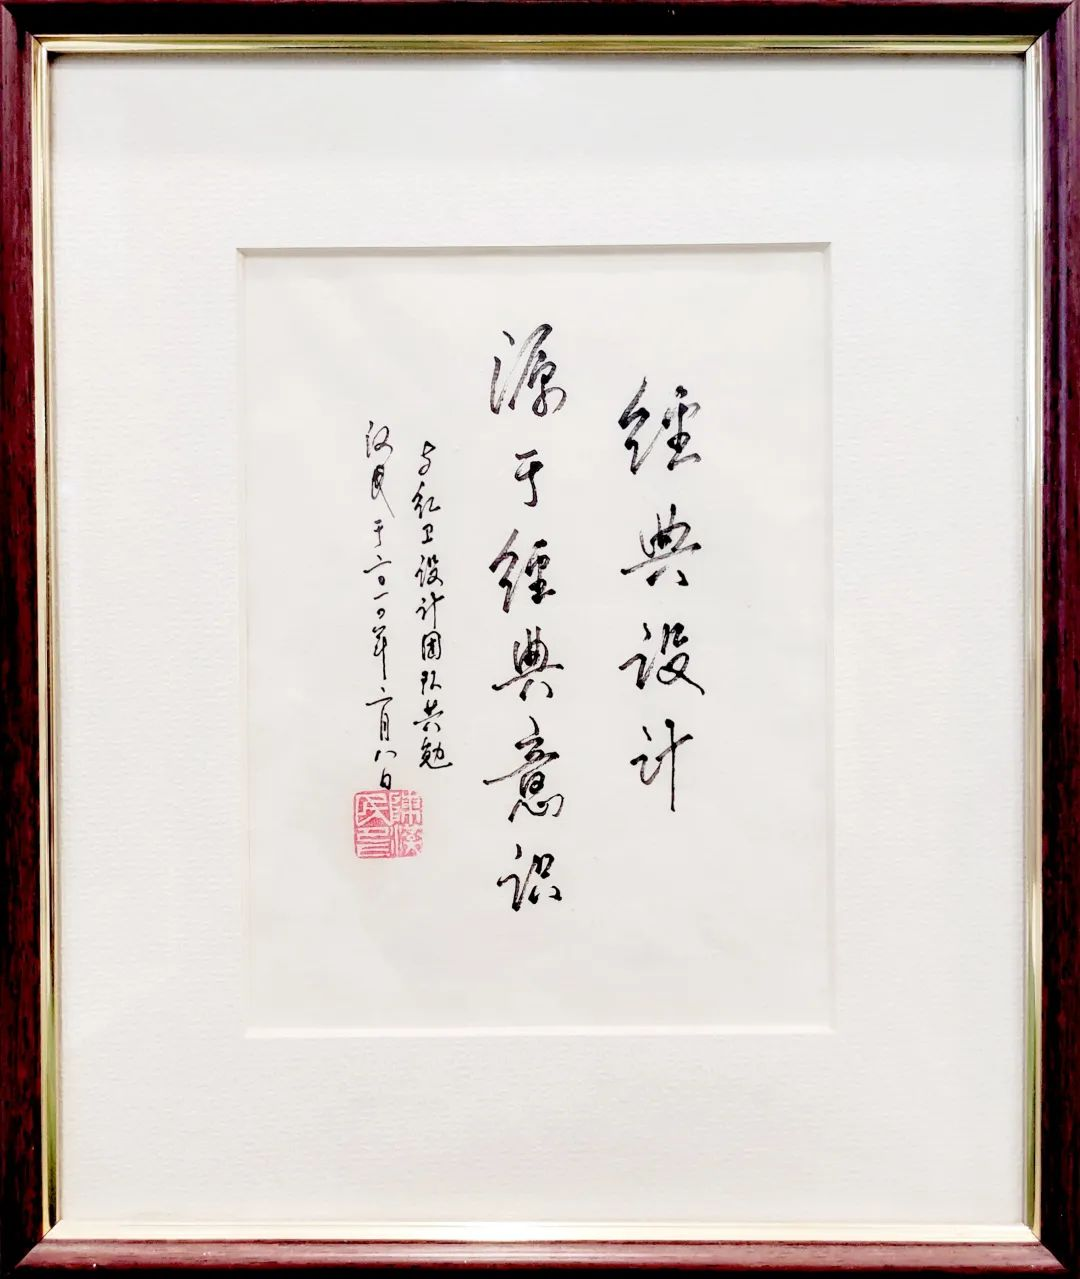 經典设计
源于經典意识
与红卫设计团队共勉
汉民于二〇一〇年二月八日
陳漢民印